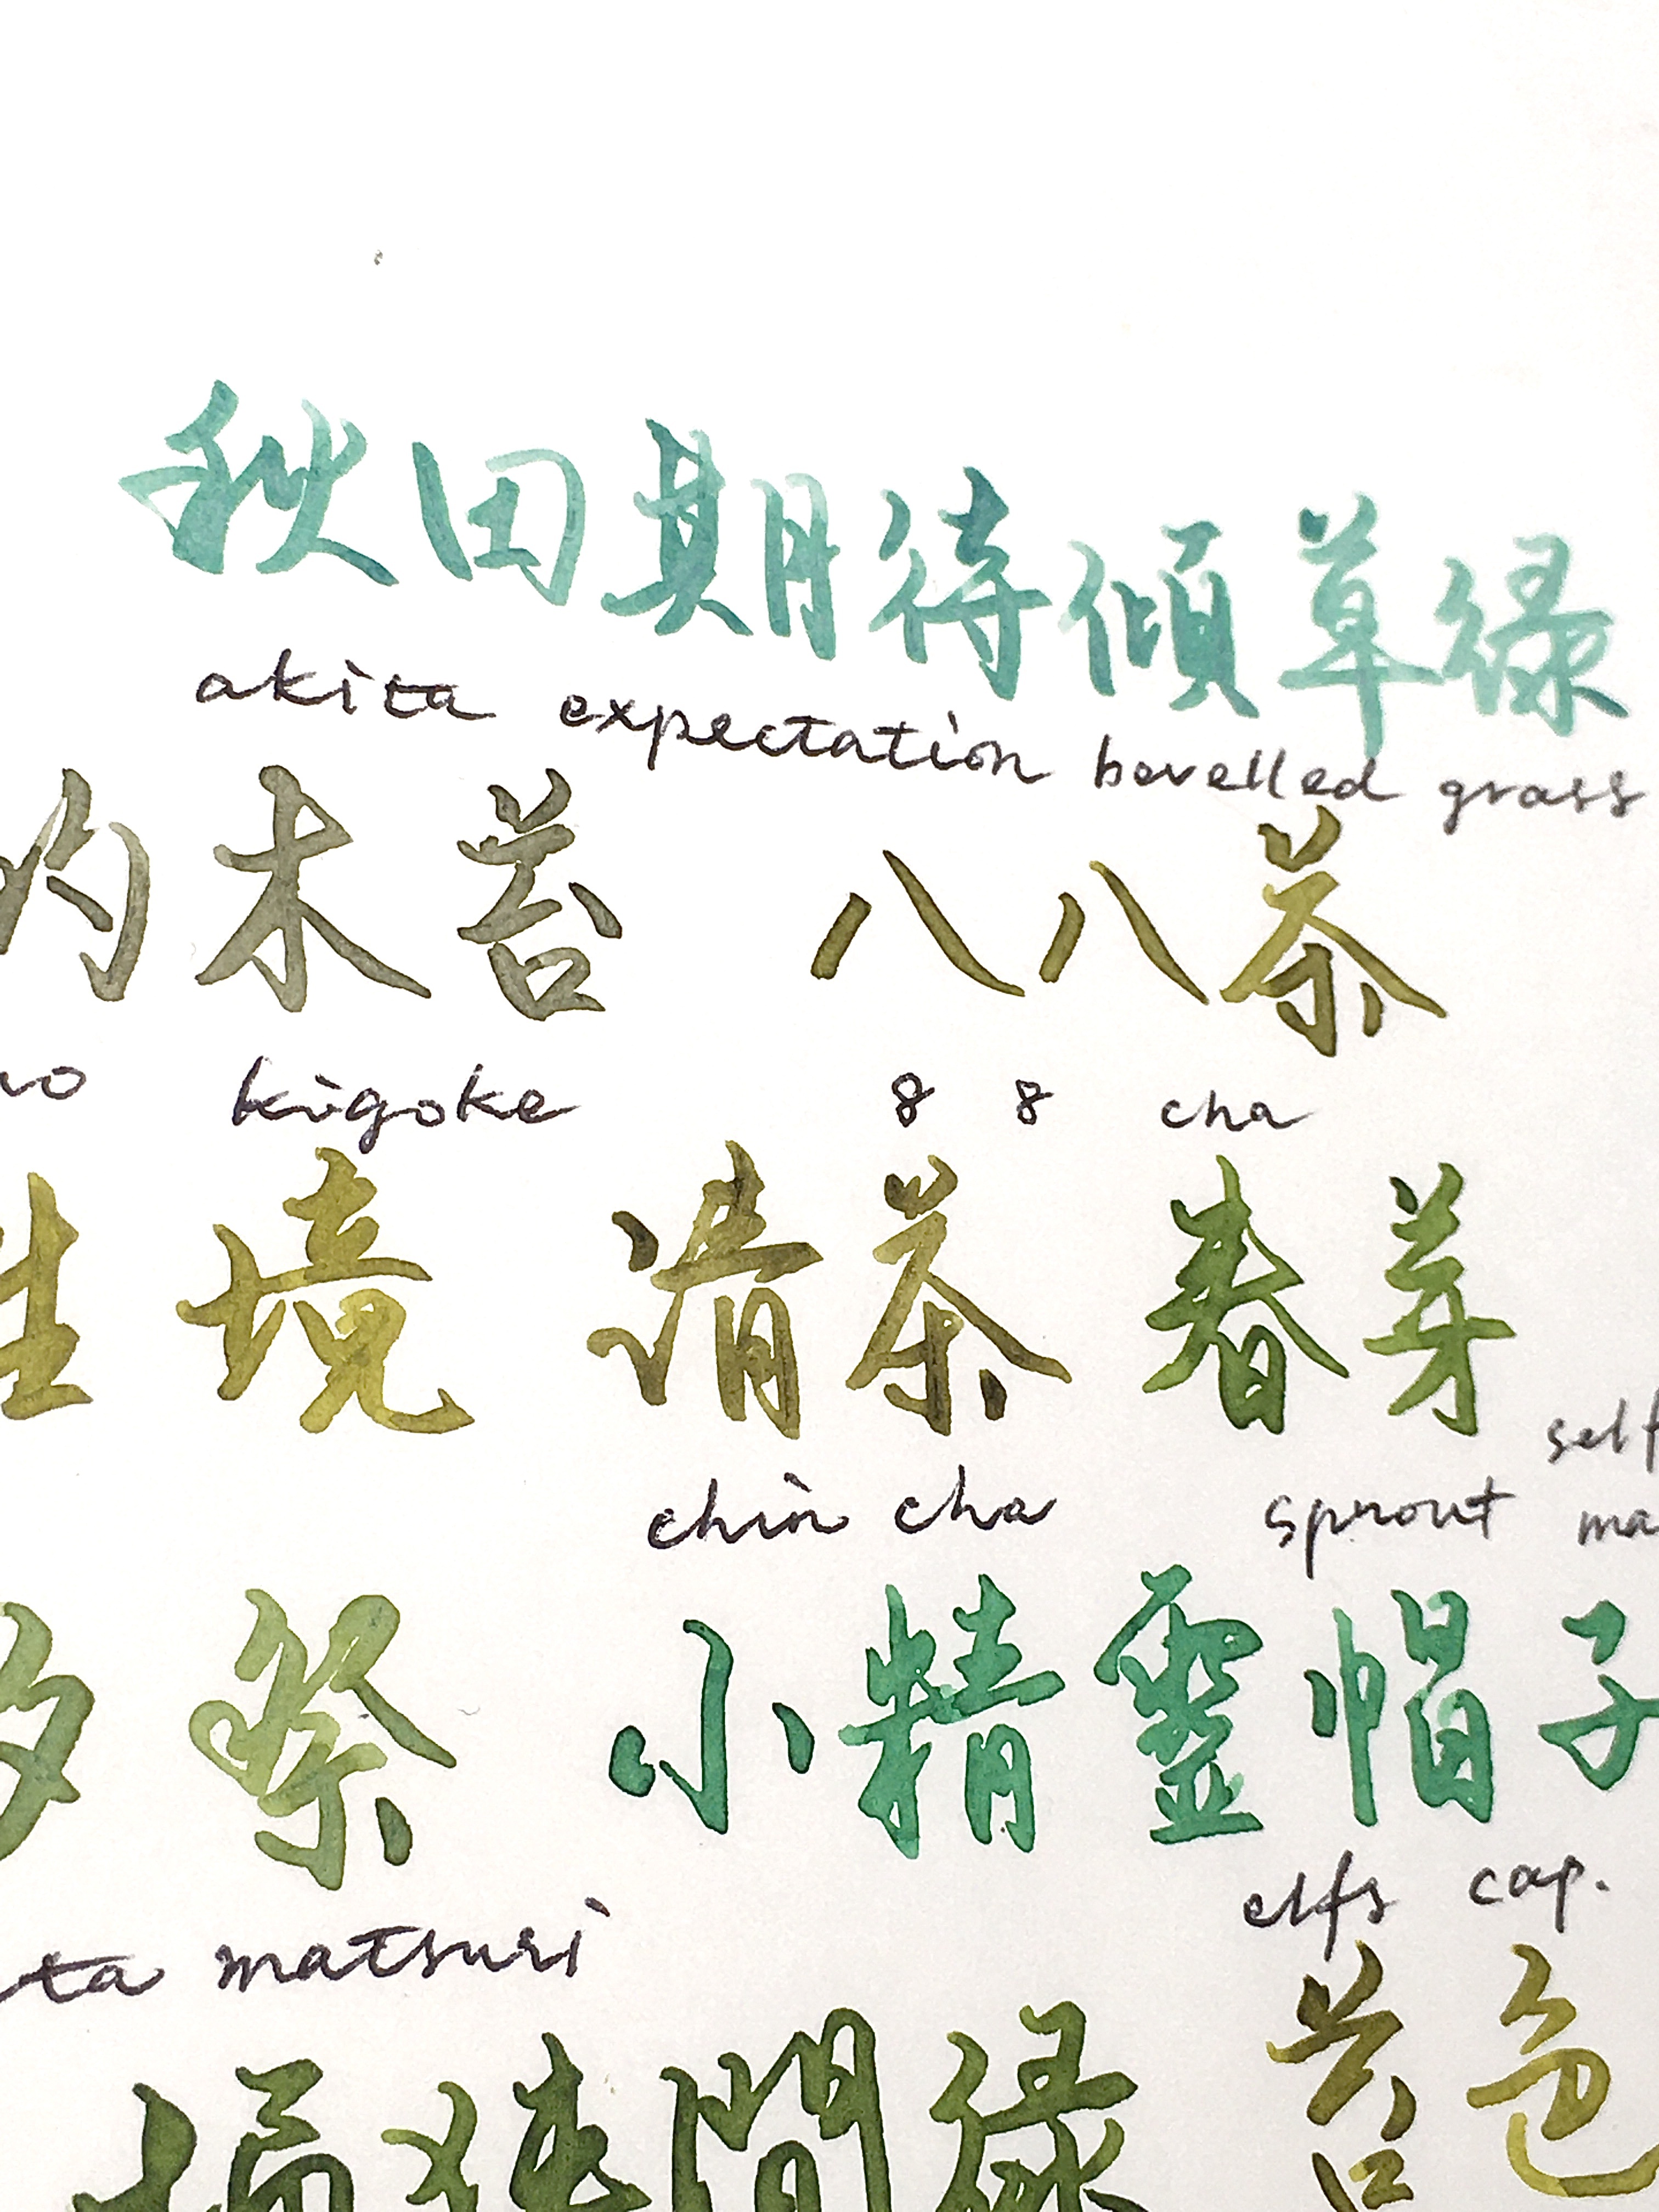 秋田期待傾草緑
akita expectation bevelled grass
的木苔 八八茶
no kigoke 8 8 cha
生境 清茶 春芽
self
chin cha sprout ma
夕祭 小精靈帽子
elfs cap.
ta matsuri
苔色
間緑